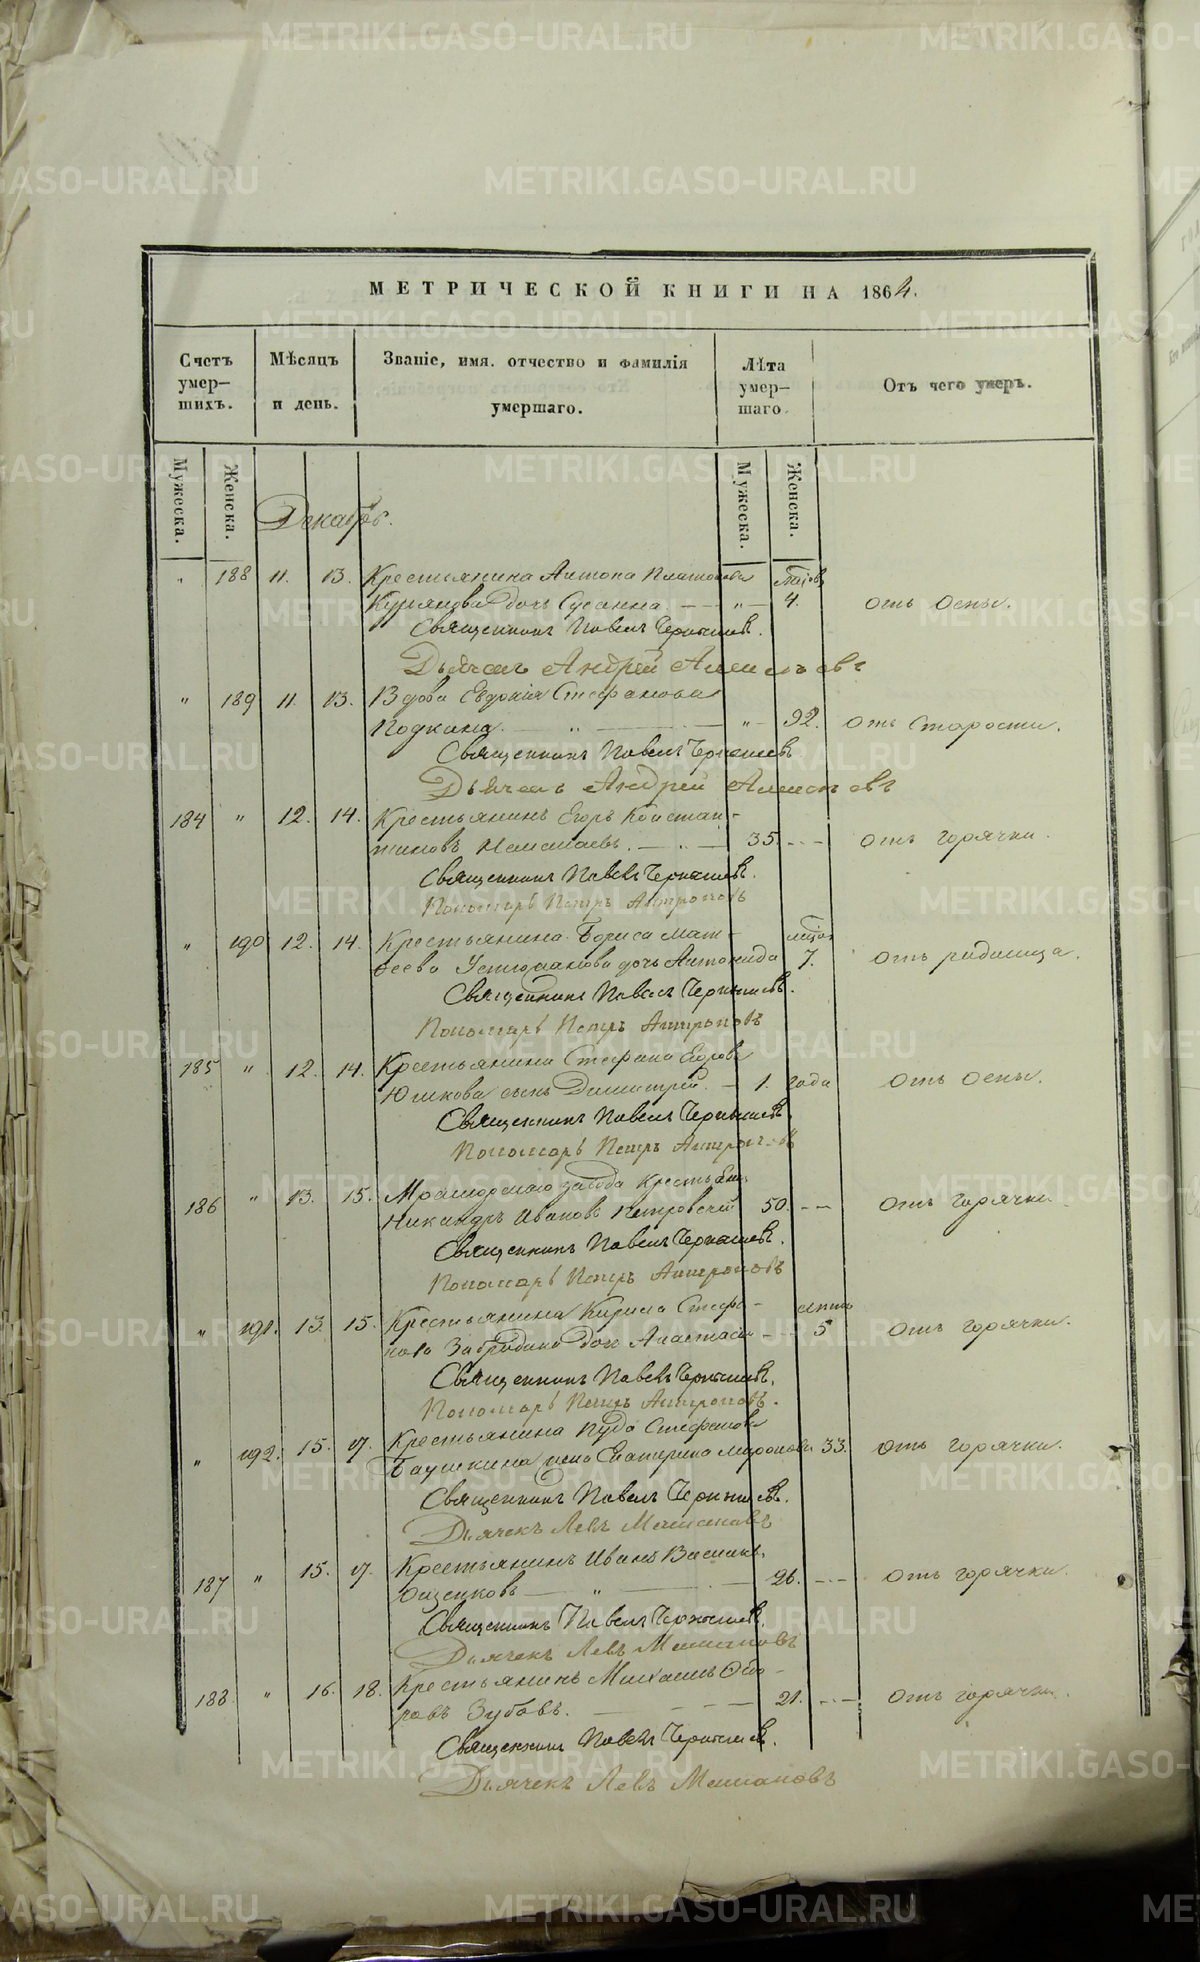 МЕТРИЧЕСКОЙ КНИГИ НА 1864.
Счетъ умер-шихъ.
Мѣсяцъ и день.
Званіе, имя, отчество и фамилія умершаго.
Лѣта умер-шаго.
Отъ чего умеръ.
Мужеска. Женска. Мужеска. Женска.
Декабрь.
" 188 11. 13. Крестьянина Антона Платонова
дочь Сусанна — " — 4. отъ оспы.
Священникъ Павелъ Чернышевъ.
Дьячекъ Андрей Алексѣевъ
" 189 11. 13. Вдова Евдокія Стефанова
— " — 92. отъ старости.
Священникъ Павелъ Чернышевъ
Дьячекъ Андрей Алексѣевъ
184 " 12. 14. Крестьянинъ Егоръ Констан-
тиновъ — " — 35. - - - отъ горячки.
Священникъ Павелъ Чернышевъ.
Пономарь Петръ Антроповъ
" 190 12. 14. Крестьянина Бориса Мат-
ѳеева Устюжанова дочь Антонида 7. отъ родимца.
Священникъ Павелъ Чернышевъ.
Пономарь Петръ Антроповъ
185 " 12. 14. Крестьянина Стефана Егорова
Юшкова сынъ Димитрій. — 1. года отъ оспы.
Священникъ Павелъ Чернышевъ.
Пономарь Петръ Антроповъ
186 " 13. 15. Мраморскаго завода крестьян.
Никандръ Ивановъ Петровскій 50. - - отъ горячки
Священникъ Павелъ Чернышевъ.
Пономарь Петръ Антроповъ
" 191. 13. 15. Крестьянина Кирила Стефа-
нова дочь Анастасія - - 5 отъ горячки.
Священникъ Павелъ Чернышевъ.
Пономарь Петръ Антроповъ.
" 192. 15. 17. Крестьянина Пуда Стефанова
жена Екатерина Миронова 33. отъ горячки.
Священникъ Павелъ Чернышевъ.
Дьячекъ Левъ
187 " 15. 17. Крестьянинъ Иванъ Васильевъ
— " — 26. - - - отъ горячки.
Священникъ Павелъ Чернышевъ.
Дьячекъ Левъ
188 " 16. 18. Крестьянинъ Михаилъ Ѳедо-
ровъ Зубовъ. — — — 21. - - - отъ горячки.
Священникъ Павелъ Чернышевъ.
Дьячекъ Левъ
METRIKI.GASO-URAL.RU